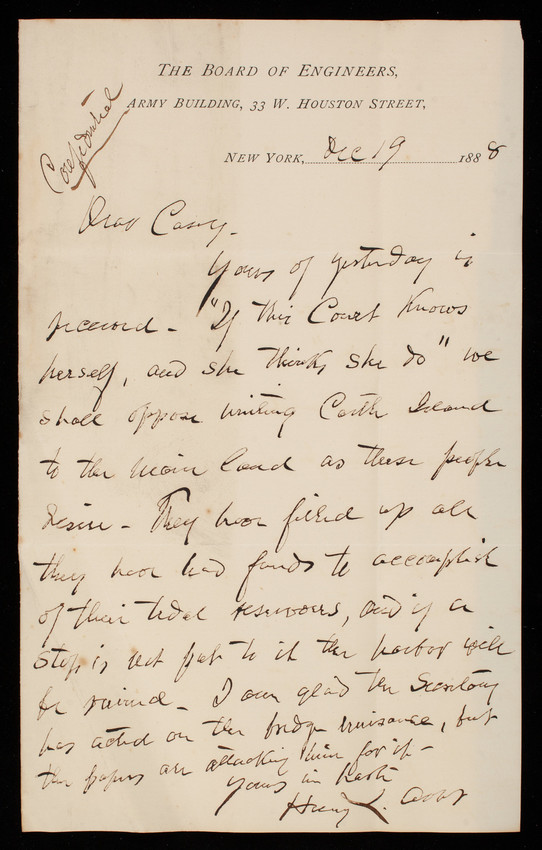 The Board of Engineers,
Army Building, 33 W. Houston Street,
Confidential
New York, Dec 19 1888
Dear Casey.
Yours of yesterday is
received - "If this Court Knows
herself, and she thinks she do" we
shall oppose uniting Castle Island
to the main land as these people
desire - They have filled up all
they have had funds to accomplish
of their tidal reservoirs, and if a
stop is not put to it the harbor will
be ruined - I am glad the Secretary
has acted on the bridge nuisance, but
the papers are attacking him for it -
Yours in haste
Henry L. Abbot